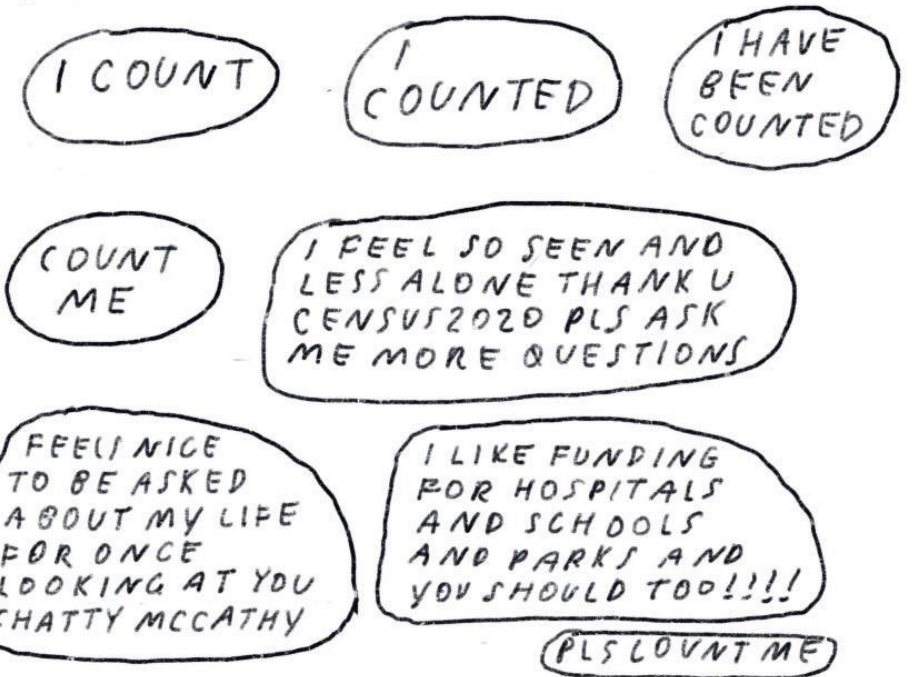 I COUNT
I
COUNTED
I HAVE
BEEN
COUNTED
COUNT
ME
I FEEL SO SEEN AND
LESS ALONE THANK U
CENSUS2020 PLS ASK
ME MORE QUESTIONS
FEELS NICE
TO BE ASKED
ABOUT MY LIFE
FOR ONCE
LOOKING AT YOU
CHATTY MCCATHY
I LIKE FUNDING
FOR HOSPITALS
AND SCHOOLS
AND PARKS AND
YOU SHOULD TOO!!!!
PLS COUNT ME